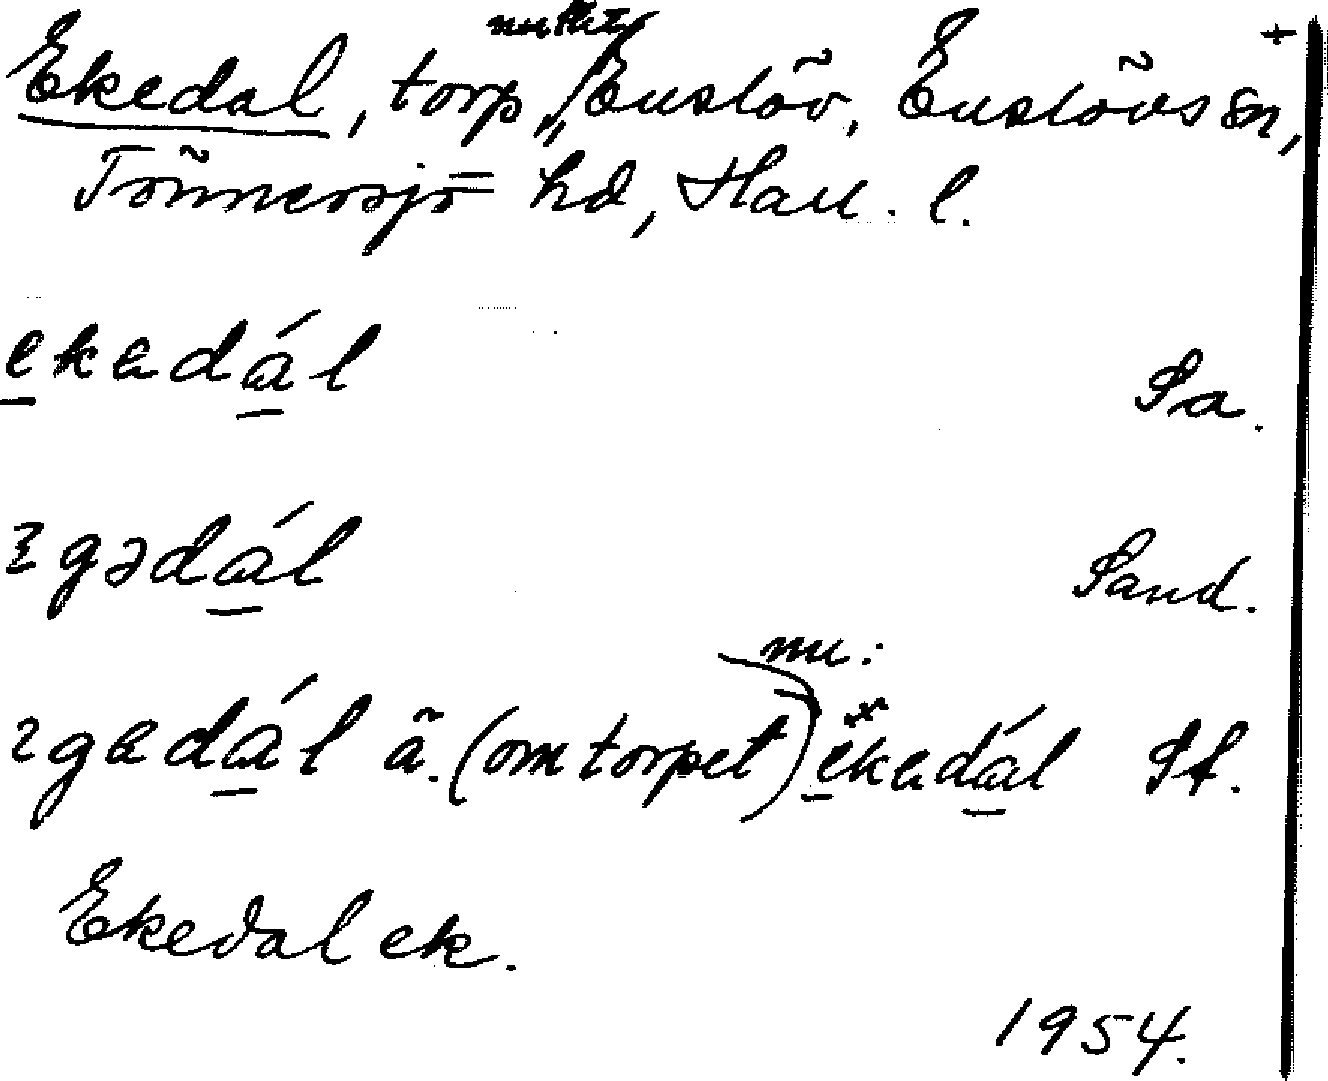 Ekedal, torp, Enslöv, Enslövs sn, +
Tönnersjö hd, Hall. l.
ekadál Sa.
gədál Sand.
nu:
gadál ä. (om torpet) ekadál St.
Ekedal ek.
1954.